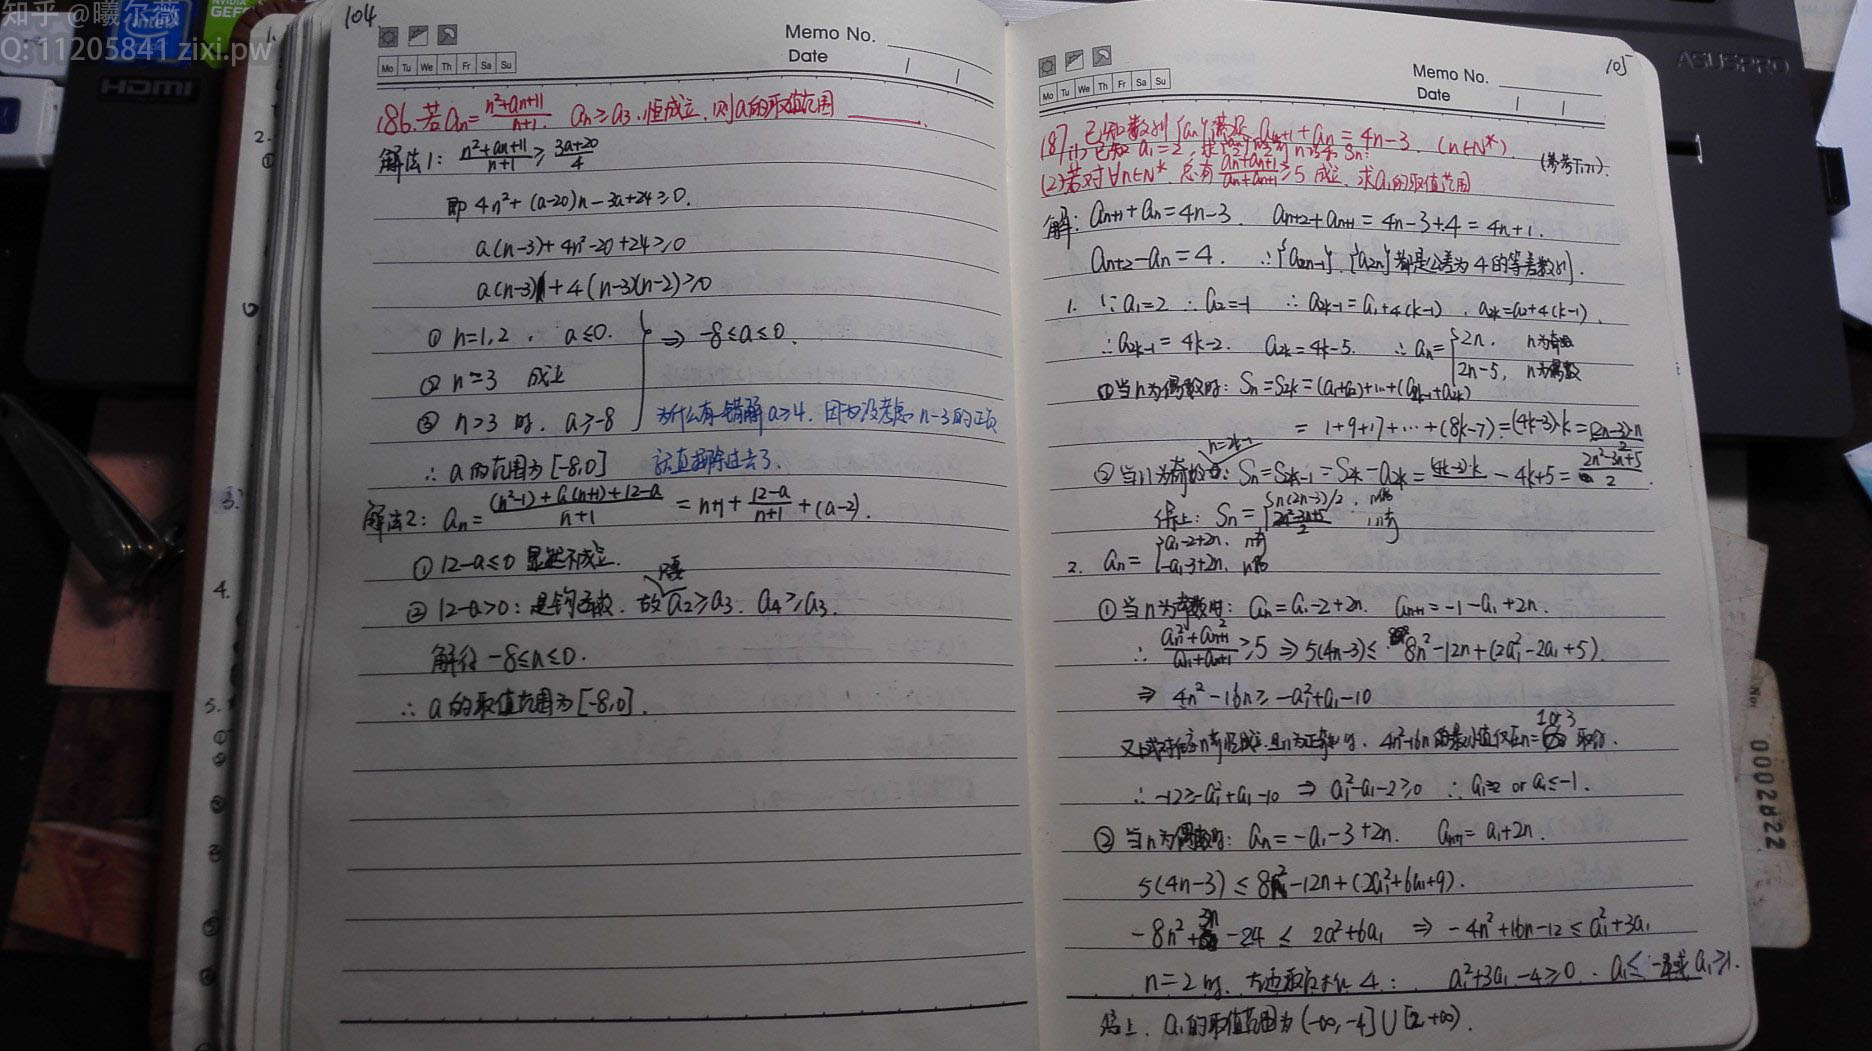 知乎 @曦尔薇
Q: 11205841 zixi.pw
HDMI
ASUSPRO
104
Memo No.
Date
Mo Tu We Th Fr Sa Su
186. 若 an = (n²+an+11)/(n+1), an ≥ a3 恒成立, 则 a 的取值范围
解法1: (n²+an+11)/(n+1) ≥ (3a+20)/4
即 4n²+(a-20)n-3a+24≥0.
a(n-3)+4n²-20+24≥0
a(n-3)+4(n-3)(n-2)≥0
① n=1,2, a≤0.
⇒ -8≤a≤0.
② n=3 成立
③ n>3 时, a≥-8
为什么有错解 a≥4, 因为没考虑 n-3 的正负
就直接除过去了.
∴ a 的范围为 [-8,0]
解法2: an = ((n²-1)+a(n+1)+12-a)/(n+1) = n+1+(12-a)/(n+1)+(a-2).
① 12-a≤0 显然不成立.
② 12-a>0: 是钩函数, 故 只要 a2≥a3, a4≥a3.
解得 -8≤a≤0.
∴ a 的取值范围为 [-8,0].
105
Memo No.
Date
Mo Tu We Th Fr Sa Su
187. 已知数列 {an} 满足 an+1+an=4n-3. (n∈N*).
(1) 已知 a1=2, 求 Sn.
(2) 若对 ∀n∈N*, 总有 (an²+an+1²)/(an+an+1) ≥5 成立, 求 a1 的取值范围
解: an+1+an=4n-3. an+2+an+1=4n-3+4=4n+1.
an+2-an=4. ∴{a2n-1}, {a2n} 都是公差为 4 的等差数列.
1. ∵a1=2 ∴a2=-1 ∴a2k-1=a1+4(k-1), a2k=a2+4(k-1).
∴a2k-1=4k-2. a2k=4k-5. ∴an={2n, n为奇数
2n-5, n为偶数
① 当 n 为偶数时: Sn=S2k=(a1+a2)+…+(a2k-1+a2k)
=1+9+17+…+(8k-7)=(4k-3)·k=(2n-3)·n/2
n=2k-1
② 当 n 为奇数时: Sn=S2k-1=S2k-a2k=(4k-3)·k-4k+5=(2n²-3n+5)/2.
综上: Sn={n(2n-3)/2, n偶
(2n²-3n+5)/2, n奇
2. an={a1-2+2n, n奇
-a1-3+2n, n偶
① 当 n 为奇数时: an=a1-2+2n. an+1=-1-a1+2n.
∴ (an²+an+1²)/(an+an+1) ≥5 ⇒ 5(4n-3)≤8n²-12n+(2a1²-2a1+5).
⇒ 4n²-16n≥-a1²+a1-10
1or3
4n²-16n 的最小值仅在 n= 取得.
∴ -12≥-a1²+a1-10 ⇒ a1²-a1-2≥0 ∴ a1≥2 or a1≤-1.
② 当 n 为偶数时: an=-a1-3+2n. an+1=a1+2n.
5(4n-3)≤8n²-12n+(2a1²+6a1+9).
-8n²+32n-24≤2a²+6a1 ⇒ -4n²+16n-12≤a1²+3a1
n=2时, 左边取最大值 4: a1²+3a1-4≥0. a1≤-4或 a1≥1.
综上, a1的取值范围为 (-∞,-4]∪[2,+∞).
No:
0002822